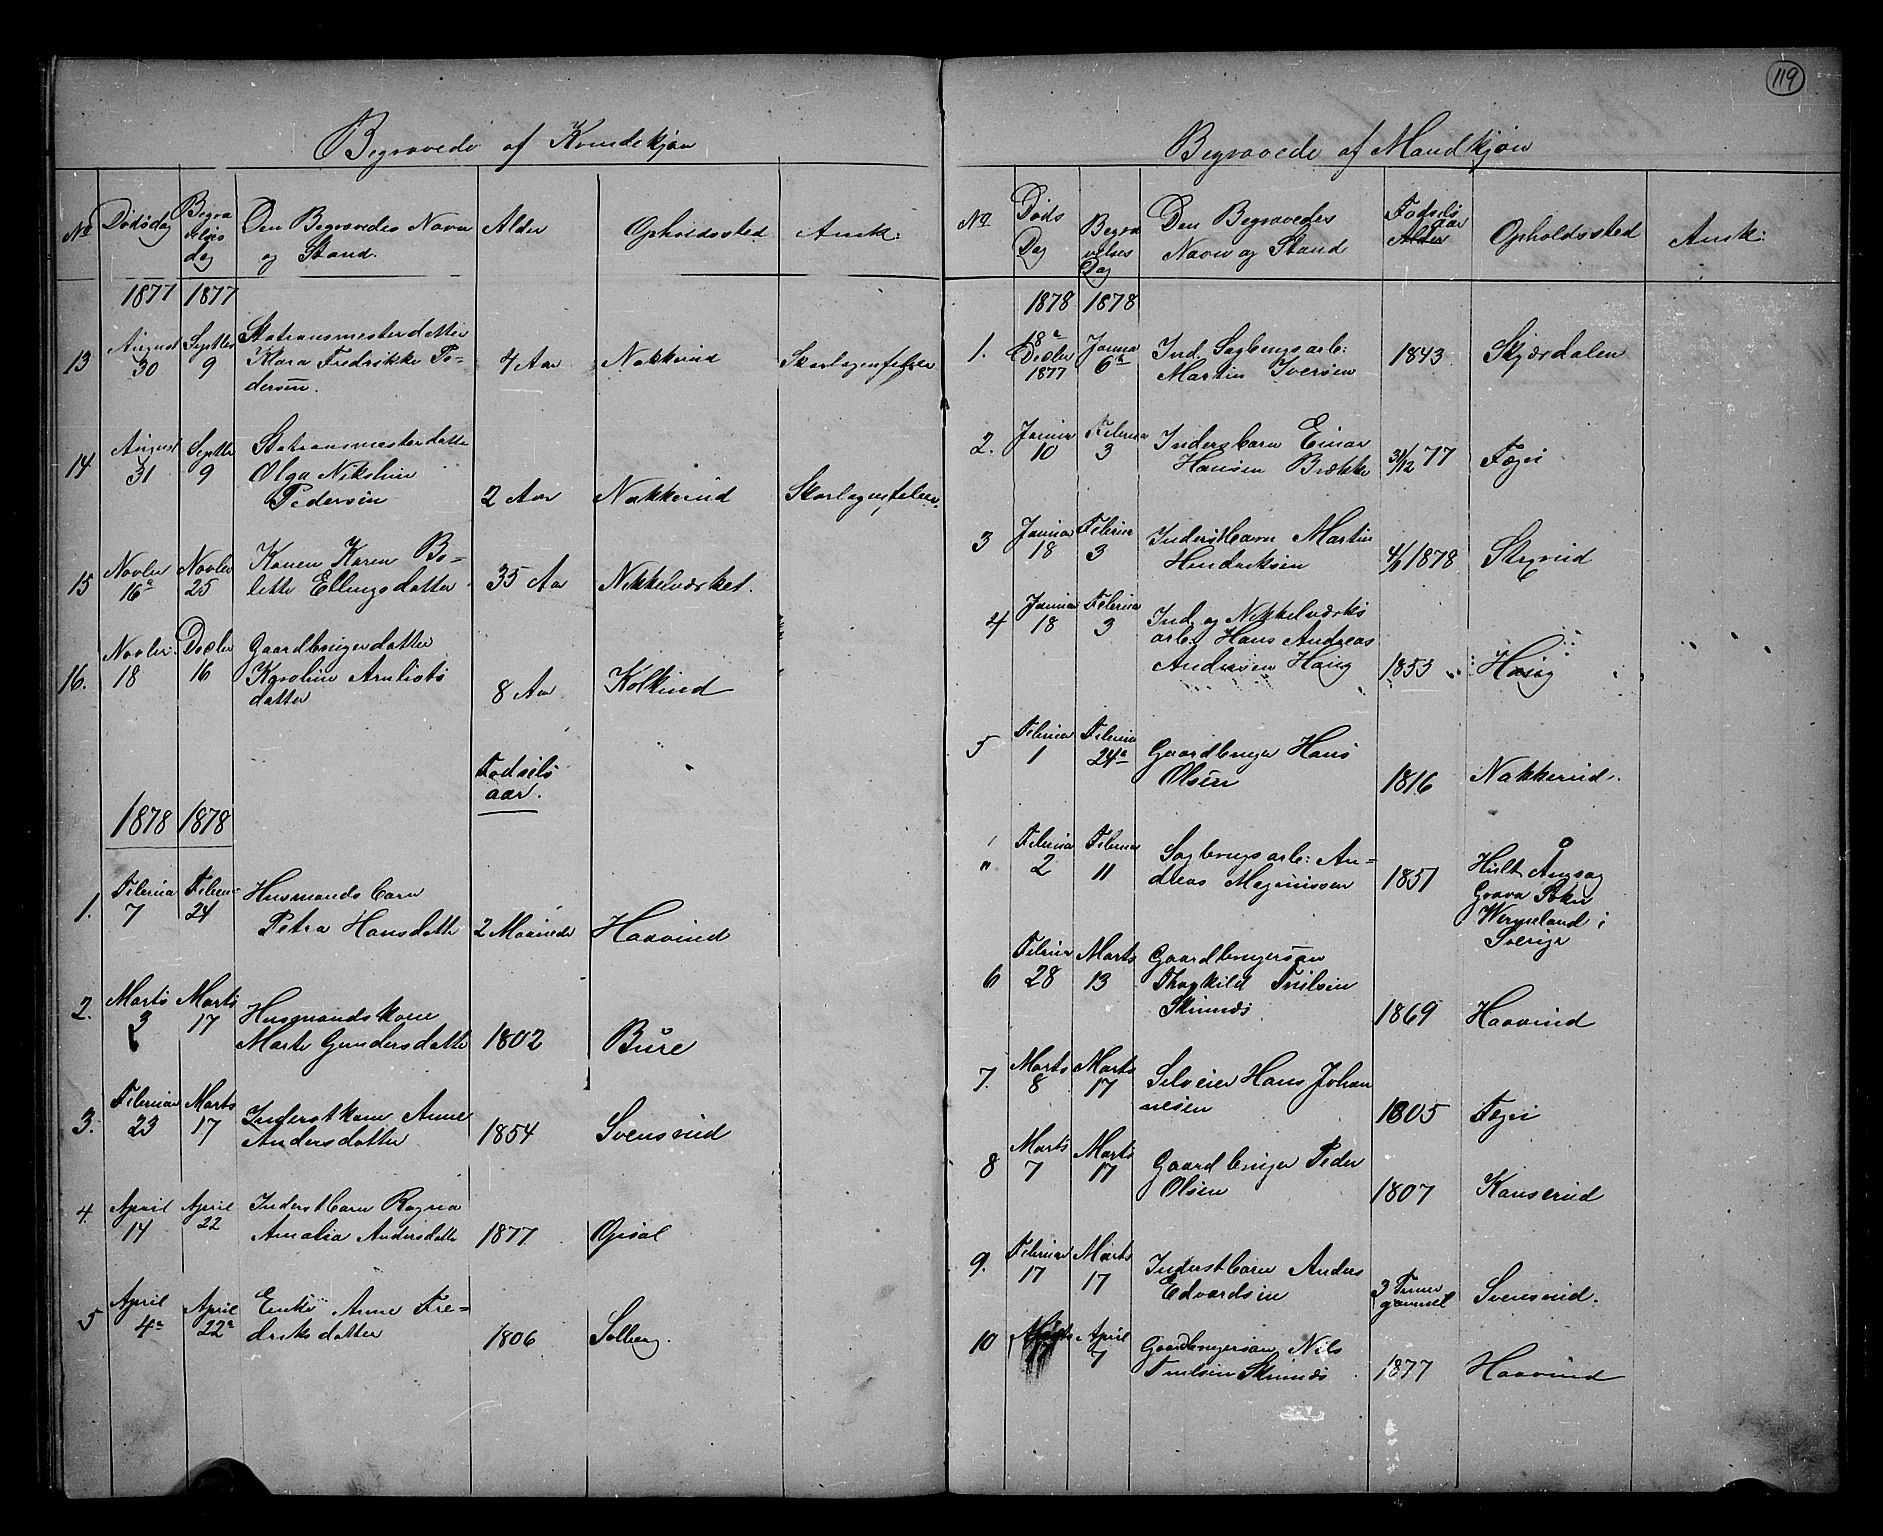 119
Begravede af Kvindekjøn
No
Dødsdag
Begra
velses
dag
Den Begravedes Navn
og Stand.
Alder
Opholdssted
Ansk:
1877 1877
13
August
30
Septbr
9
Stationsmesterdatter
Klara Fredrikke Pe-
dersen.
4 Aar
Nakkerud
Skarlagensfeber
14
August
31
Septbr
9
Stationsmesterdatter
Olga
Pedersen
2 Aar
Nakkerud
Skarlagensfeber
15
Novbr
16a
Novbr
25
Konen Karen Bo-
lette Ellingsdatter
35 Aar
Nikkelværket.
16.
Novbr.
18
Decbr
16
Gaardbrugerdatter
Karoline
datter
8 Aar
Kolkind
Fødsels
aar.
1878 1878
1.
Februar
7
Februar
24
Husmandsbarn
Petra Hansdatter
2 Maaneder
Haavind
2.
Marts
3
Marts
17
Husmandskone
Marte Gundersdatter
1802
Bure
3.
Februar
23
Marts
17
Inderstkone Anne
Andersdatter
1854
Svensrud
4.
April
14
April
22
Inderstbarn Ragna
Amalia Andersdatter
1877
Opsal
5
April
4a
April
22a
Enke Anne Fre-
driksdatter
1806
Solberg.
Begravede af Mandkjøn
No
Døds
Dag
Begra
velses
Dag
Den Begravedes
Navn og Stand
Fødsels
aar
Alder
Opholdssted
Ansk:
1878 1878
1.
18a
Decbr
1877
Janua
6a
Ind. Sagbrugsarb:
Martin Iversen
1843
Skjærdalen
2.
Januar
10
Februar
3
Inderstbarn Einar
Hansen Brække
31/12 77
Fægri
3
Januar
18
Februar
3
Inderstbarn Martin
Hendriksen
4/1 1878
Styrud
4
Januar
18
Februar
3
Ind. og Nikkelværks
arb. Hans Andreas
Andersen Haug
1853
Haug
5
Februar
1
Februar
24a
Gaardbruger Hans
Olsen
1816
Nakkerud.
"
Februar
2
Februar
11
Sagbrugsarb: An-
dreas Magnussen
1851
Hult Ångsåg
Grava Sokn
Wermeland i
Sverige
6
Februar
28
Marts
13
Gaardbrugersøn
Thorkild Truelsen
Skinnes
1869
Haavind
7.
Marts
8
Marts
17
Selveier Hans Johan
nesen
1805
Fegri
8
Marts
7
Marts
17
Gaardbruger Peder
Olsen
1807
Kanserud
9.
Februar
17
Marts
17
Inderstbarn Anders
Edvardsen
3 Timer
gammel
Svensrud.
10
Marts
17
April
7
Gaardbrugersøn Nils
Truelsen Skinnes
1877
Haavind